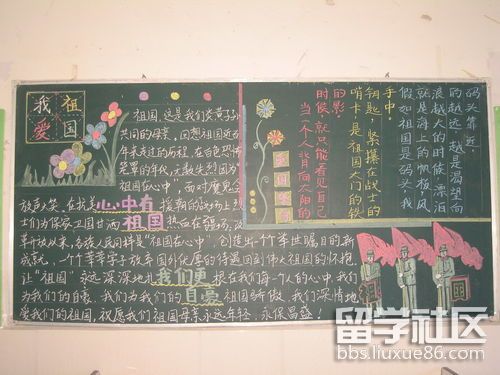 我 祖
爱 国
祖国,这是我们炎黄子
共同的母亲,回想祖国近
年来走过的历程,在白色恐怖
笼罩的年代,无数先烈因为
祖国在心中",面对魔鬼会
放声
心中有
士们为保家卫国甘洒
祖国
热血在疆场,改
革开放以来,各族人民同样是"祖国在心中",创造出一个个举世瞩目的新
成就,一个个莘莘学子放弃国外优厚的待遇回到伟大祖国的怀抱,
让"祖国"永远深深地扎
我们更
根在我们每一个人的心中,我们
为我们的
自豪
我们为我们的
祖国骄傲,我们深情地
爱我们的祖国,祝愿我们祖国母亲永远年轻,永保昌盛!
码头靠近,
的越远,越是渴望向
浪越大的时候,漂泊
就是海上的帆,极风
假如祖国是码头,我
手中!
钥匙,紧攥在战士的
哨卡,是祖国大门的铁
的影。
时候,就只能看见自己
当一个人背向太阳的
留学社区
bbs.liuxue86.com